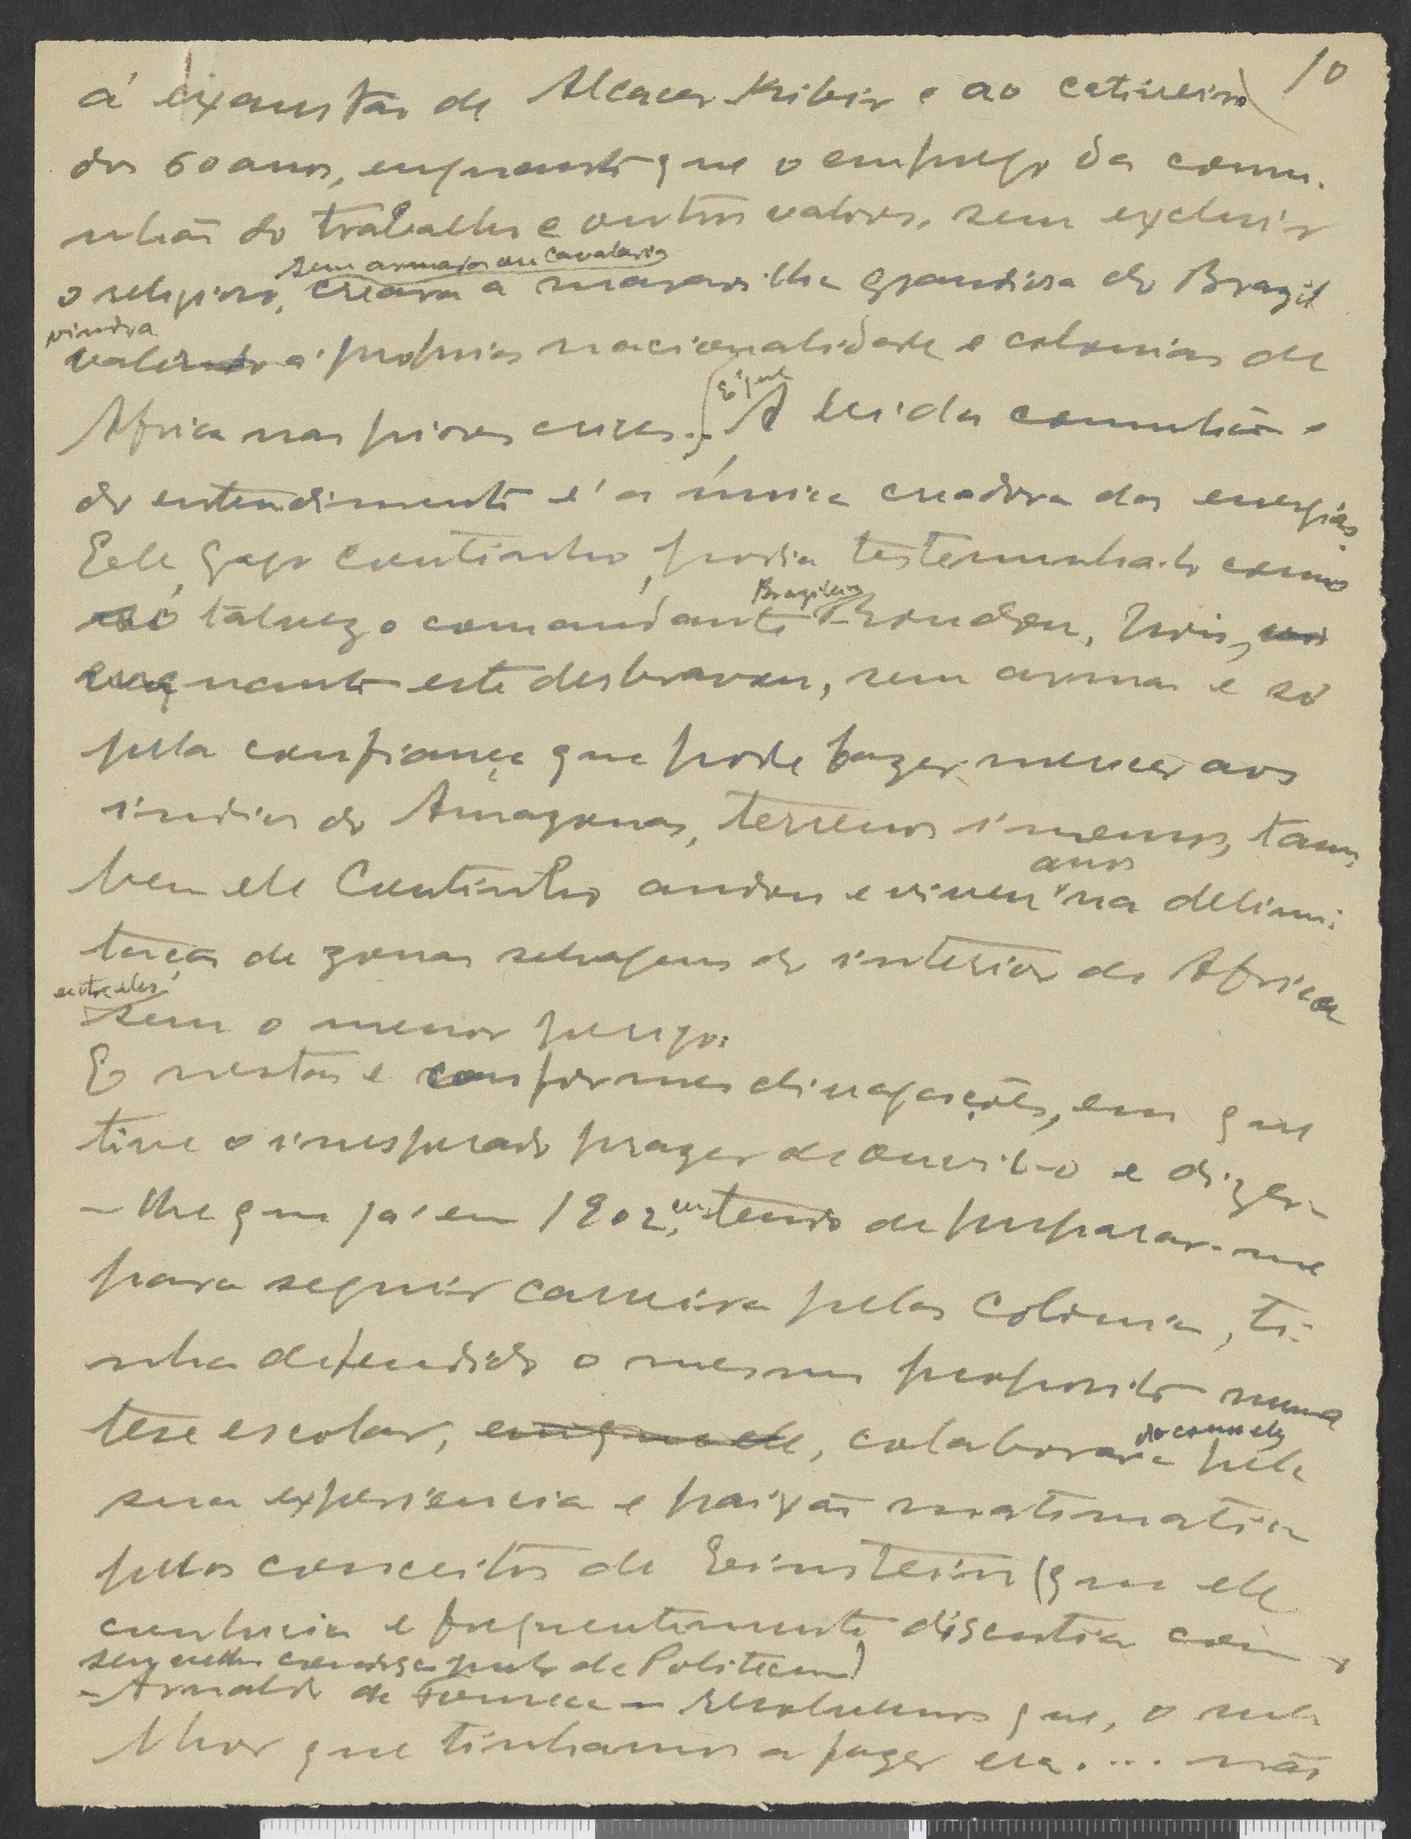 10
á exaustão de Alcacer Kibir e ao cativeiro
dos 60 anos, enquanto que o emprego da comu-
nhão do trabalho e outros valores, sem excluir
sem armada ou cavalaria
o religioso, creara a maravilha grandiosa do Brazil
vindra
valendo á propria nacionalidade e colonias de
Africa nas piores crises... A lei da comunhão e
do entendimento é a única creadora das energias.
Eele, Gago Coutinho, podia testemunha-lo como
Brazileiro
só talvez o comandante Rondon, Pois,
enquanto este desbravou, sem armas e só
pela confiança que pode fazer merecer aos
indios do Amazonas, terrenos imensos, tam-
anos
bem ele Coutinho andou e viveu na delimi-
tação de zonas selvagens do interior de Africa
entre eles
sem o menor perigo.
E nestas e conformes divagações, em que
tive o inesperado prazer de ouvil-o e dizer-
-lhe que já em 1902, tendo de preparar-me
para seguir carreira pelas Colonia, ti-
nha defendido o mesmo proposito numa
tese escolar, enquanto ele, colaborara pela
sua experiencia e paixão matematica
pelos conceitos de Eeinstein (que ele
conhecia e frequentemente discutia com o
seu velho condiscipulo da Politecnica)
- Arnaldo de Fonseca - resolvemos que, o me-
lhor que tinhamos a fazer era.... não